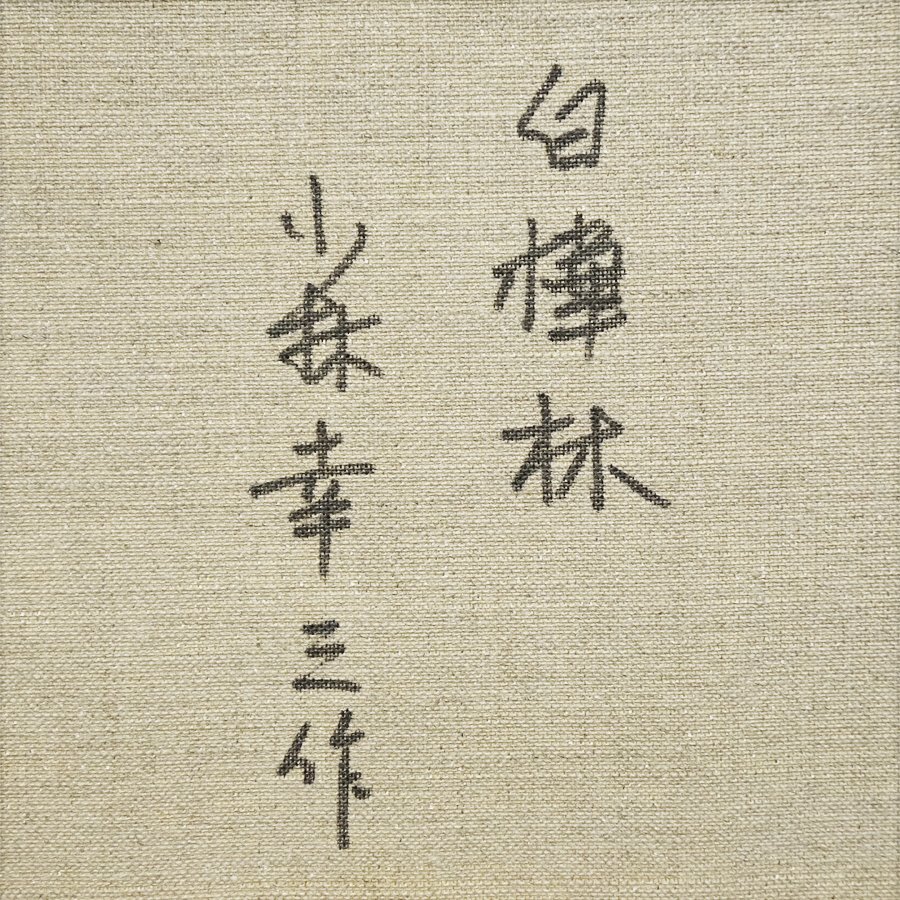 白樺林
小林幸三作